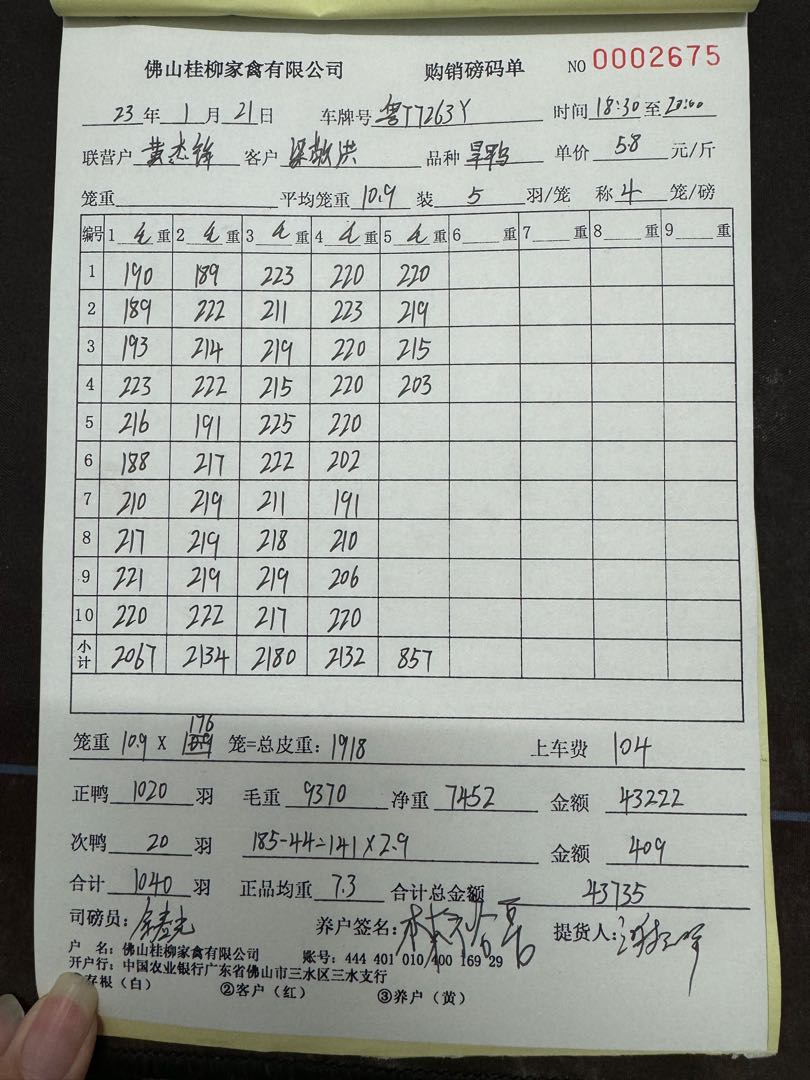 佛山桂柳家禽有限公司 购销磅码单 NO 0002675
23 年 1 月 21 日 车牌号 粤T7263Y 时间 18:30 至 20:00
联营户 黄杰锋 客户 梁敬洪 品种 旱鸭 单价 58 元/斤
笼重 平均笼重 10.9 装 5 羽/笼 称 4 笼/磅
编号 1 毛 重 2 毛 重 3 毛 重 4 毛 重 5 毛 重 6 重 7 重 8 重 9 重
1 190 189 223 220 220
2 189 222 211 223 219
3 193 214 219 220 215
4 223 222 215 220 203
5 216 191 225 220
6 188 217 222 202
7 210 219 211 191
8 217 219 218 210
9 221 219 219 206
10 220 222 217 220
小计 2067 2134 2180 2132 857
笼重 10.9 X 176 笼=总皮重: 1918 上车费 104
正鸭 1020 羽 毛重 9370 净重 7452 金额 43222
次鸭 20 羽 185-44=141×2.9 金额 409
合计 1040 羽 正品均重 7.3 合计总金额 43735
司磅员: 养户签名: 提货人:
户 名: 佛山桂柳家禽有限公司 账号: 444 401 010 400 169 29
开户行: 中国农业银行广东省佛山市三水区三水支行
存根(白) ②客户(红) ③养户(黄)